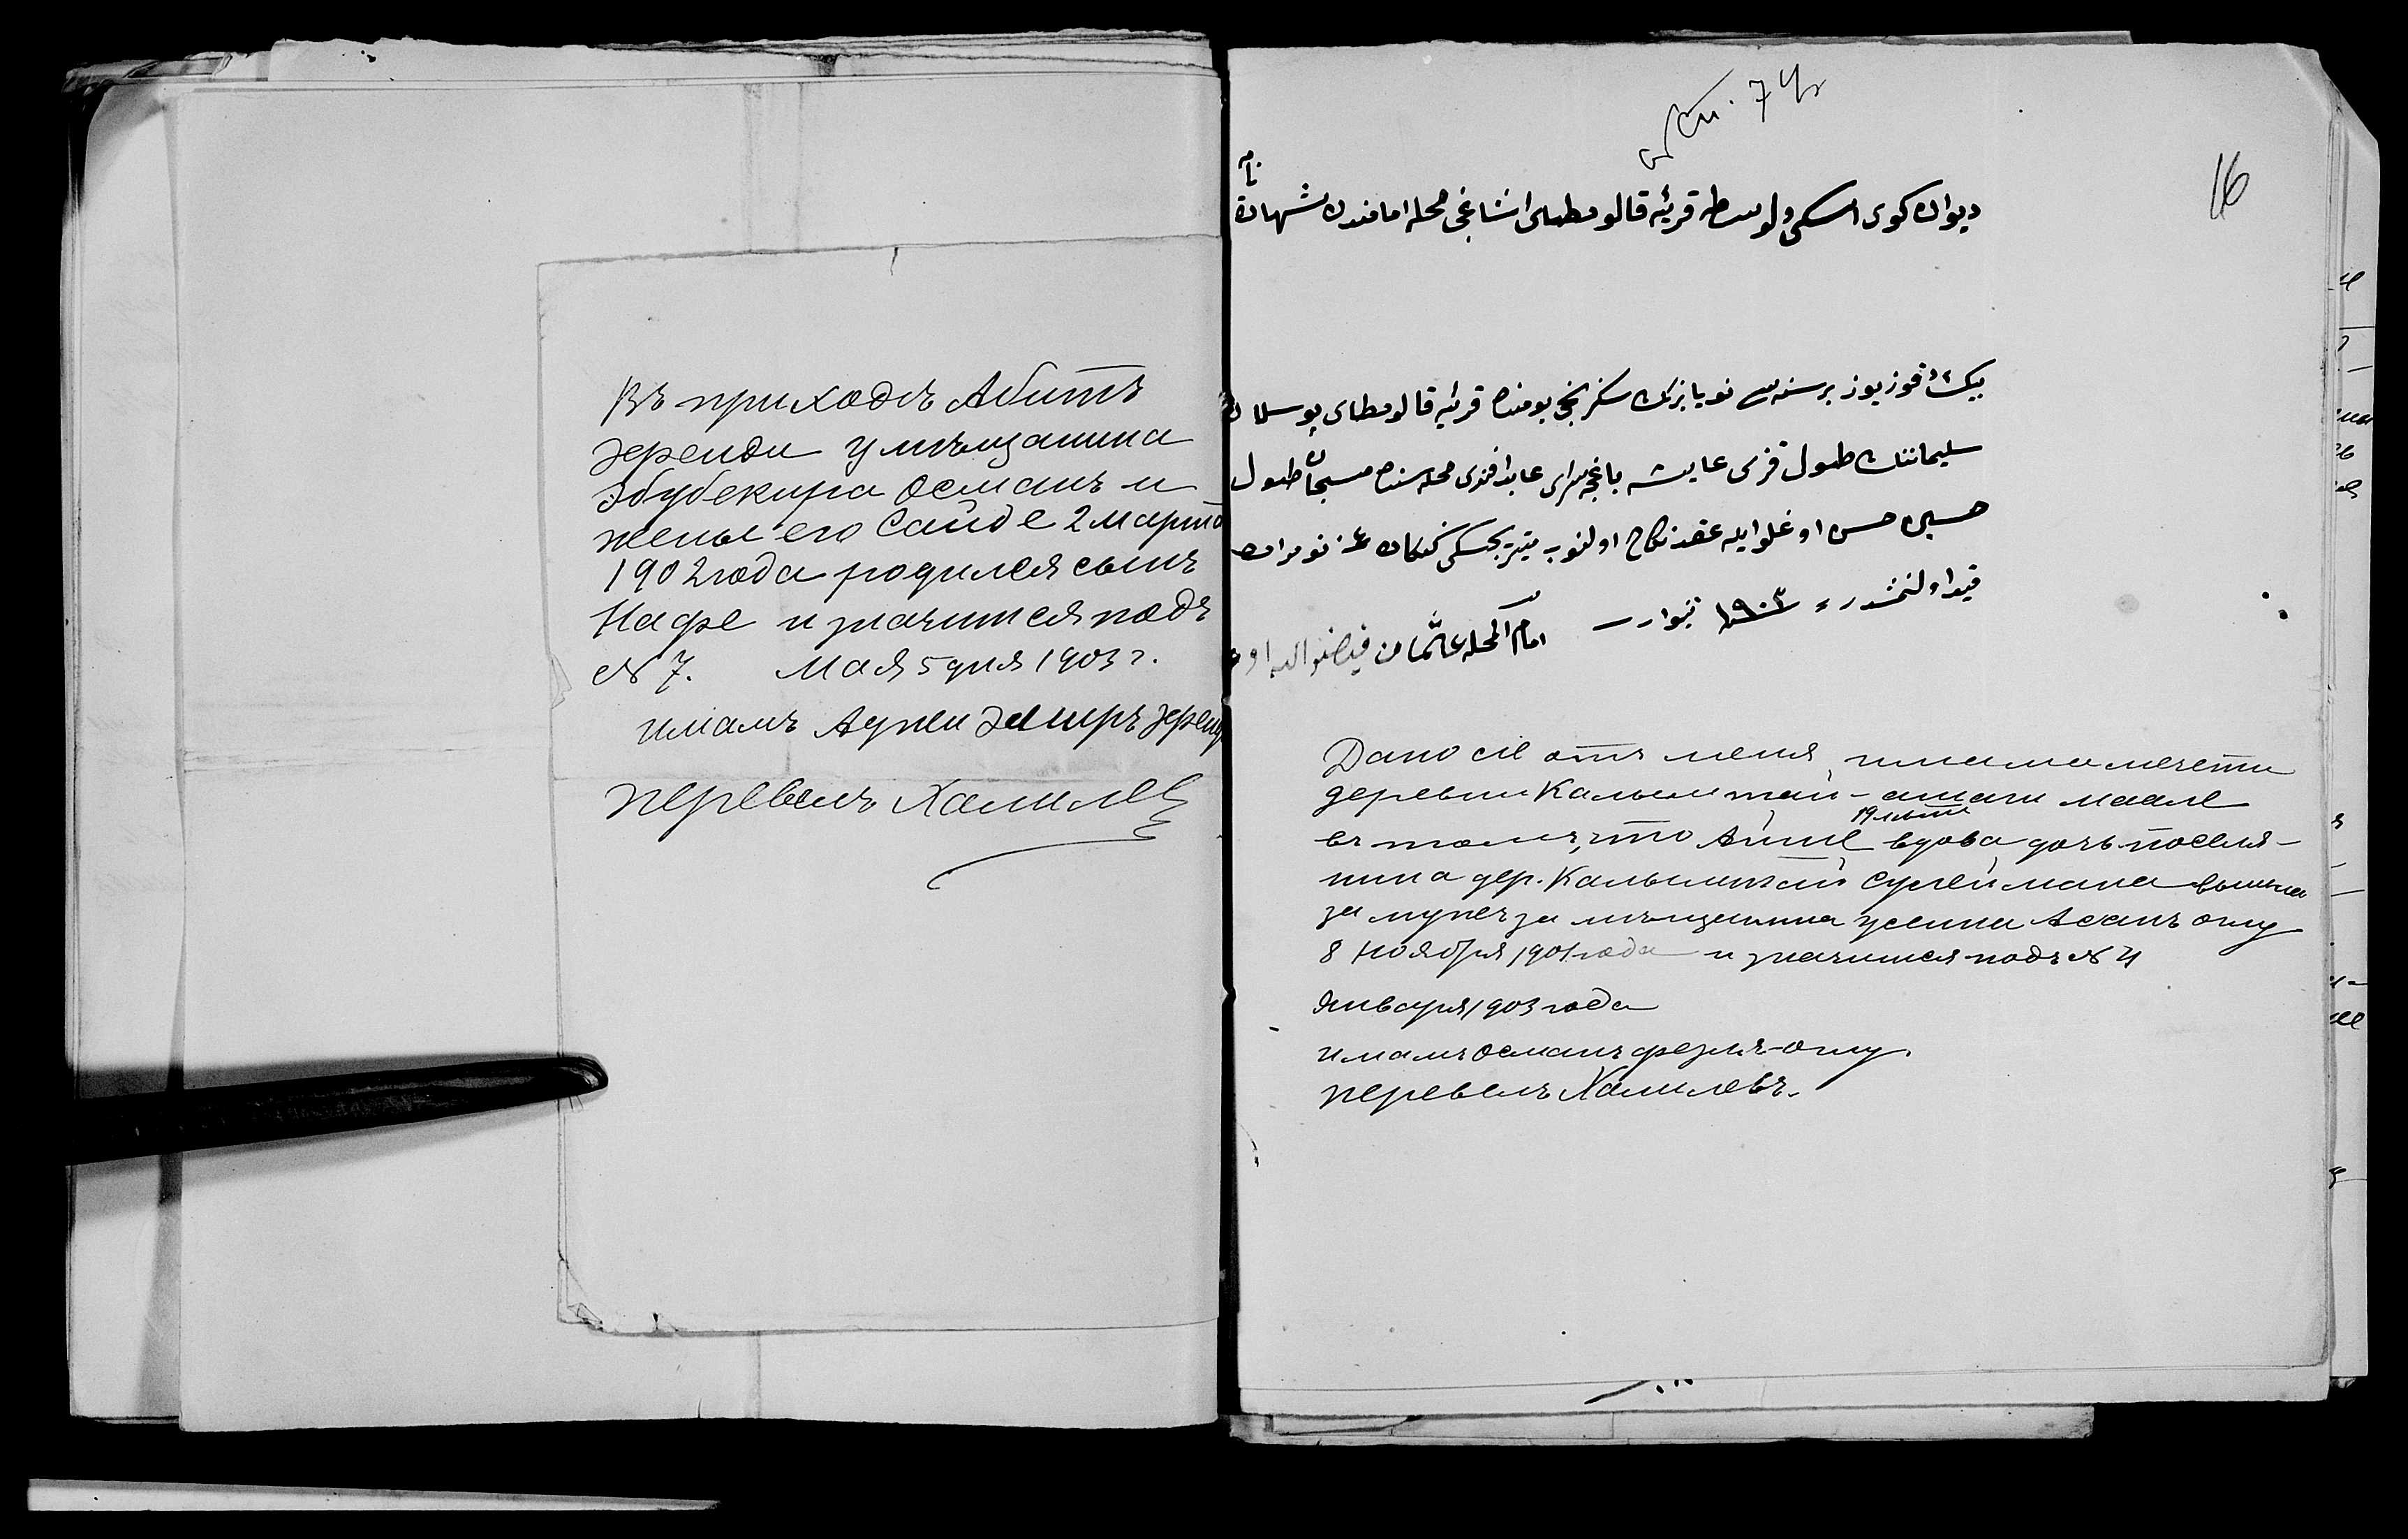 Въ приходѣ Абитъ
эфенди у мѣщанина
Эбубекира Османъ и
жены его Сайде 2 марта
1902 года родился сынъ
Нафе и значится подъ
№ 7. Мая 5 дня 1903 г.
имамъ Аджи Эмиръ эфенд
перевелъ Халилев
ст. 74
16
ديوان كوى اسكى ولوسطه قريه قالومطاى اشاغى محله امامندن شهادة
نامه
بيك طقوز يوز بر سنه سى نويابرنك سكزنجى يومنده قريه قالومطاى پوسلان
سليماننك طول قزى عايشه باغچه سراى عابد افندى محله سنده مسچان طول
حسين حسن اوغلو ايله عقد نكاح اولنوب ميتريچسكى كنيكاده ٤ نومراده
قيد اولنمشدر ١٩٠٣ ينوار
امام المحله عثمان فيض الله اوغ
Дано сіе отъ меня, имама мечети
деревни Калымтай-ашаги маале
въ томъ, что Айше 19 лѣтъ вдова дочь поселя-
нина дер. Калымтай Сулеймана вышла
за мужъ за мѣщанина Усеина Асанъ оглу
8 Ноября 1901 года и значится подъ № 4
Января 1903 года
имамъ Османъ Фезля-оглу.
перевелъ Халиловъ.